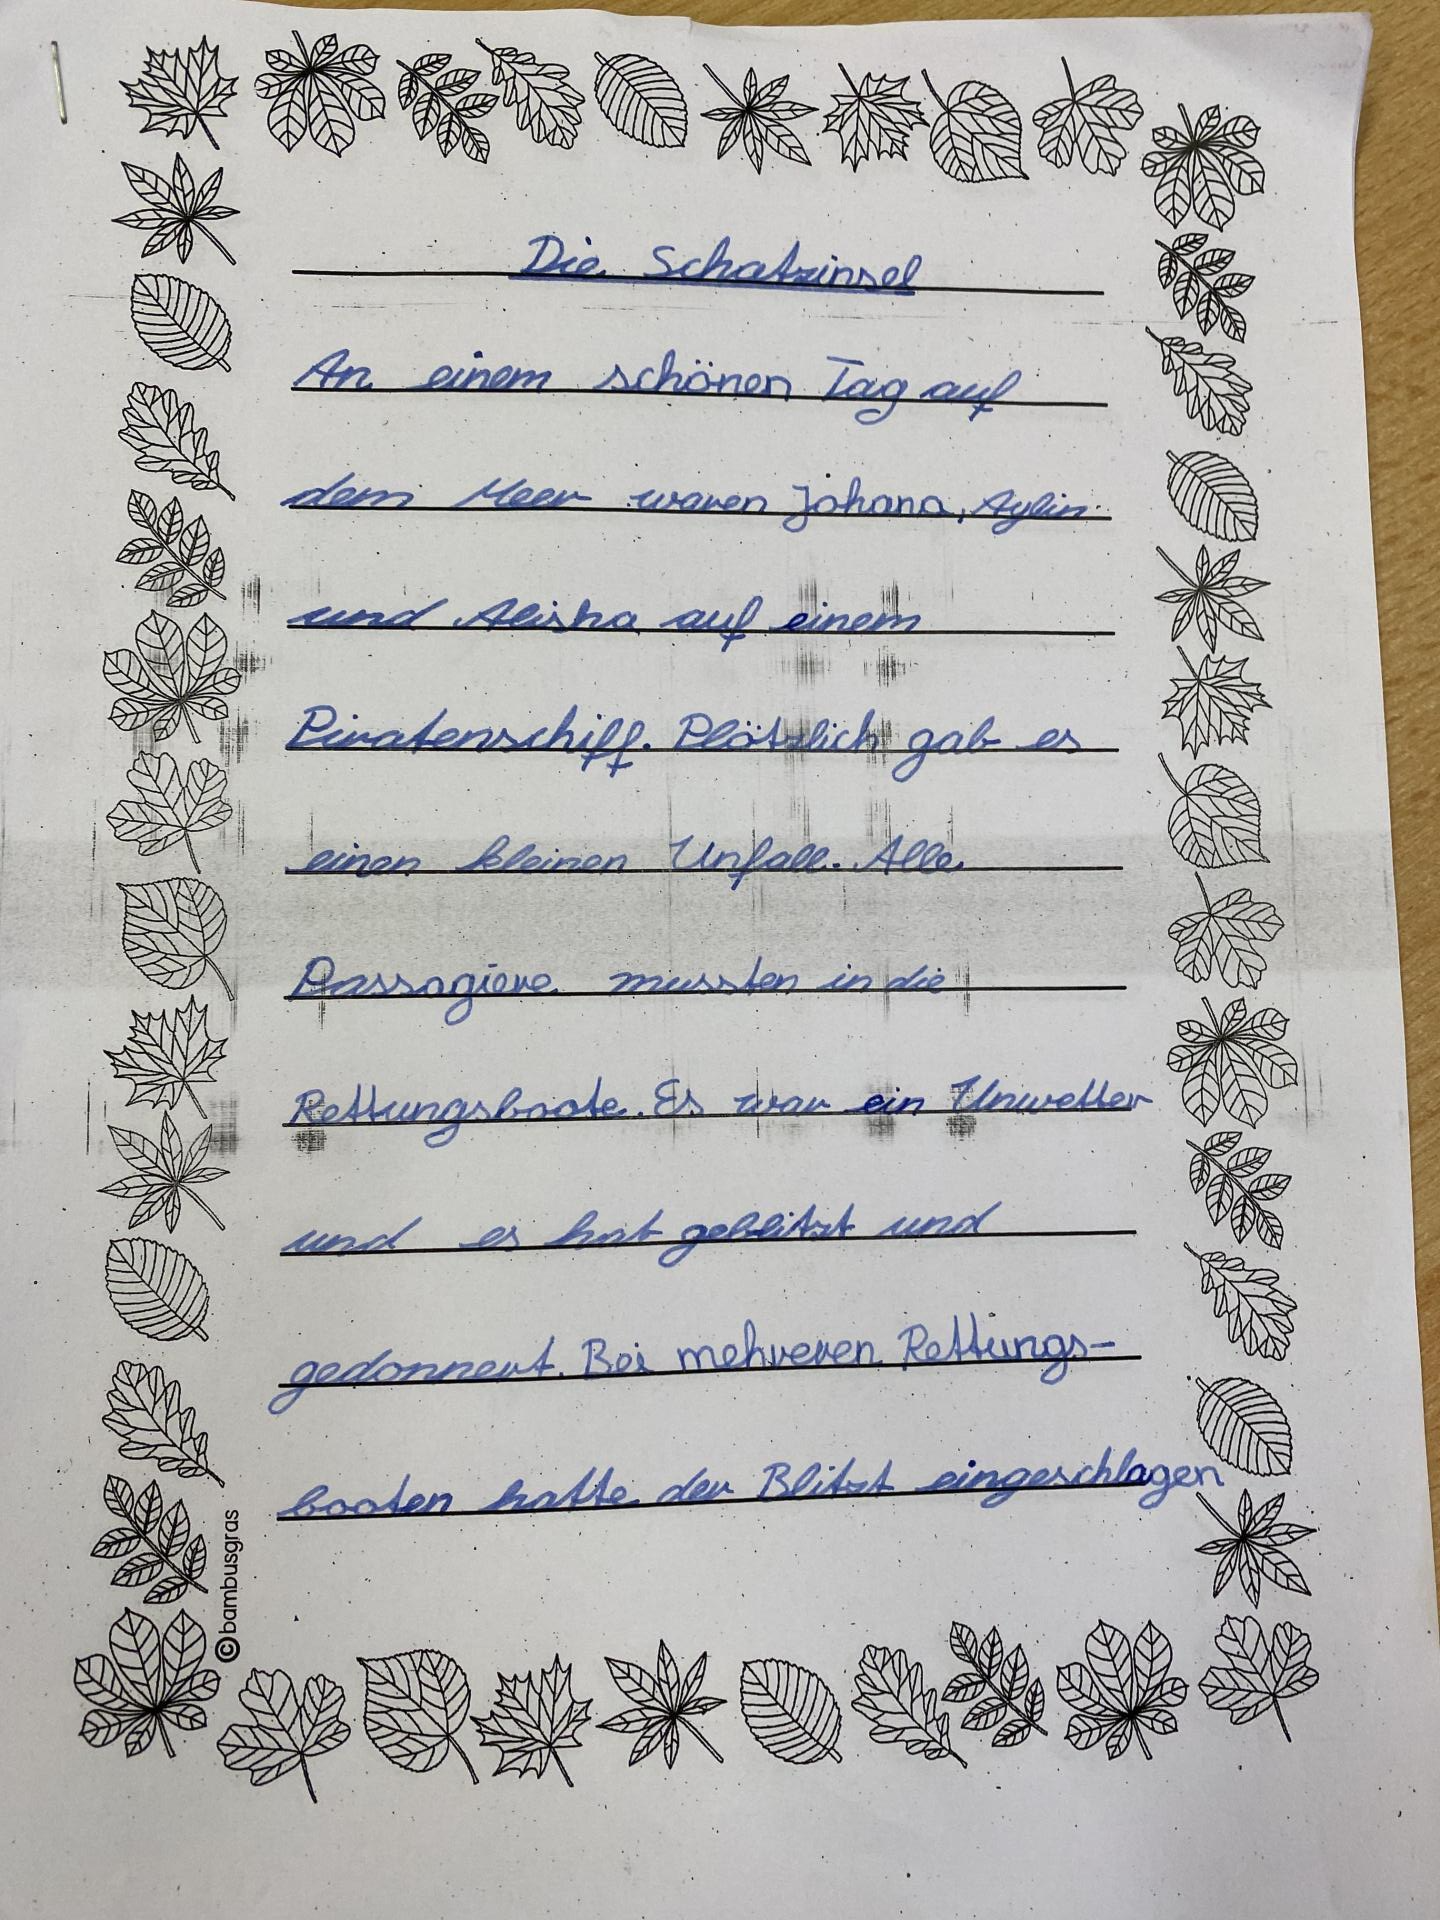 Die Schatzinsel
An einem schönen Tag auf
dem Meer waren Johana, Aylin
und Alisha auf einem
Piratenschiff. Plötzlich gab es
einen kleinen Unfall. Alle
Passagiere mussten in die
Rettungsboote. Es war ein Unwetter
und es hat geblitzt und
gedonnert. Bei mehreren Rettungs-
booten hatte der Blitzt eingeschlagen
©bambusgras